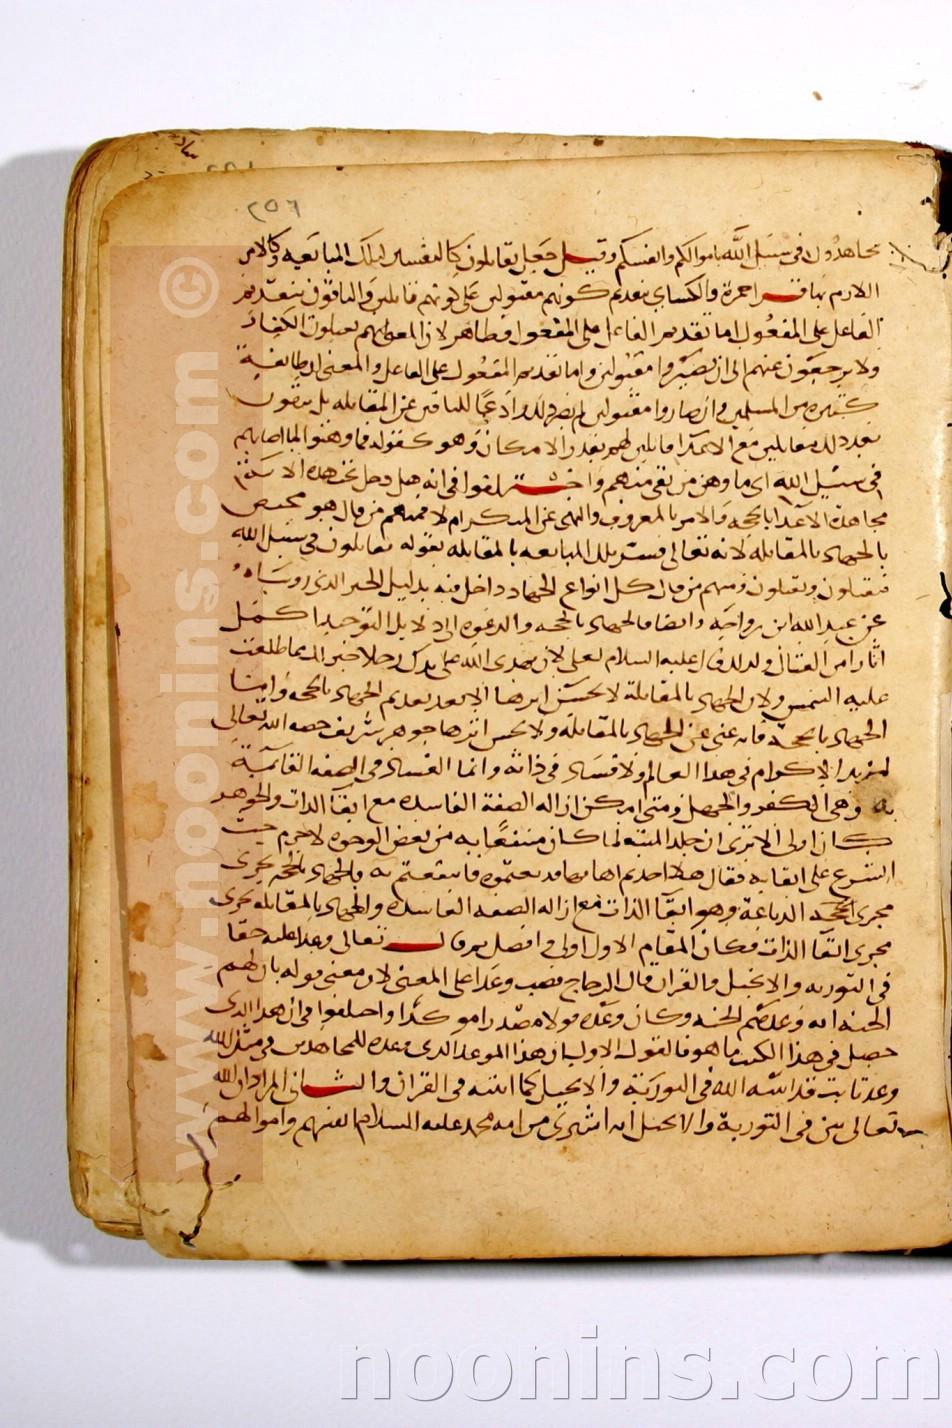 ٢٥٦
تجاهدون في سبيل الله باموالكم وانفسكم وقيل جعل يقاتلون كالتفسير لتلك المبايعة وكالامر
اللازم لها قرا حمزة والكساي بتقديم كونهم مقتولين على كونهم قاتلين والباقون بتقديم
الفاعل على المفعول اما تقديم الفاعل على المفعول فظاهر لان المعنى انهم يقتلون الكفار
ولا يرجعون عنهم الى ان يصيروا مقتولين واما تقديم المفعول على الفاعل والمعنى ان طايفة
كثيرة من المسلمين وان صاروا مقتولين لم يصر ذلك رادعا للباقين عن المقاتلة بل يبقون
بعد ذلك مقاتلين مع الاعدا قاتلين لهم بقدر الامكان وهو كقوله فما وهنوا لما اصابهم
في سبيل الله اي ما وهن من بقي منهم واختلفوا في انه هل دخل تحت هذه الاية
مجاهدة الاعدا بالحجة والامر بالمعروف والنهي عن المنكر ام لا فمنهم من قال هو مختص
بالجهاد بالمقاتلة لانه تعالى فسر تلك المبايعة بالمقاتلة بقوله يقاتلون في سبيل الله
فيقتلون ويقتلون ومنهم من قال كل انواع الجهاد داخل فيه بدليل الخبر الذي رويناه
عن عبد الله ابن رواحة وايضا فالجهاد بالحجة والدعوة الى دلايل التوحيد اكمل
اثارا من القتال ولذلك قال عليه السلام لعلي لان يهدي الله على يدك رجلا خير لك مما طلعت
عليه الشمس ولان الجهاد بالمقاتلة لا يحسن اثرها الا بعد تقديم الجهاد بالحجة واما
الجهاد بالحجة فانه غني عن الجهاد بالمقاتلة ولا يحسن اثرها جوهر شريف خصه الله تعالى
لمزيد الاكرام في هذا العالم ولا فساد في ذاته وانما الفساد في الصفة القائمة
به وهي الكفر والجهل ومتى امكن ازالة الصفة الفاسدة مع ابقا الذات والجوهر
كان اولى الا ترى ان جلد الميتة لما كان منتفعا به من بعض الوجوه لا جرم حث
الشرع على ابقايه فقال هلا اخذتم اهابها فدبغتموه فانتفعتم به والجهاد بالحجة يجري
مجرى الدباغة وهو ابقا الذات مع ازالة الصفة الفاسدة والجهاد بالمقاتلة يجري
مجرى افنا الذات فكان المقام الاول اولى وافضل ثم قال تعالى وعدا عليه حقا
في التورية والانجيل والقران قال الزجاج نصب وعدا على المعنى لان معنى قوله بان لهم
الجنة انه وعدهم الجنة وكان وعده قوله مصدرا موكدا واختلفوا في ان هذا الذي
حصل في هذا الكتب ما هو فالقول الاول ان هذا الموعد الذي وعده للمجاهدين في سبيل الله
وعد ثابت قد اثبته الله في التورية والانجيل كما اثبته في القران والثاني المراد ان الله
تعالى بين في التورية والانجيل انه اشترى من امة محمد عليه السلام انفسهم واموالهم
www.noonins.com ©
noonins.com